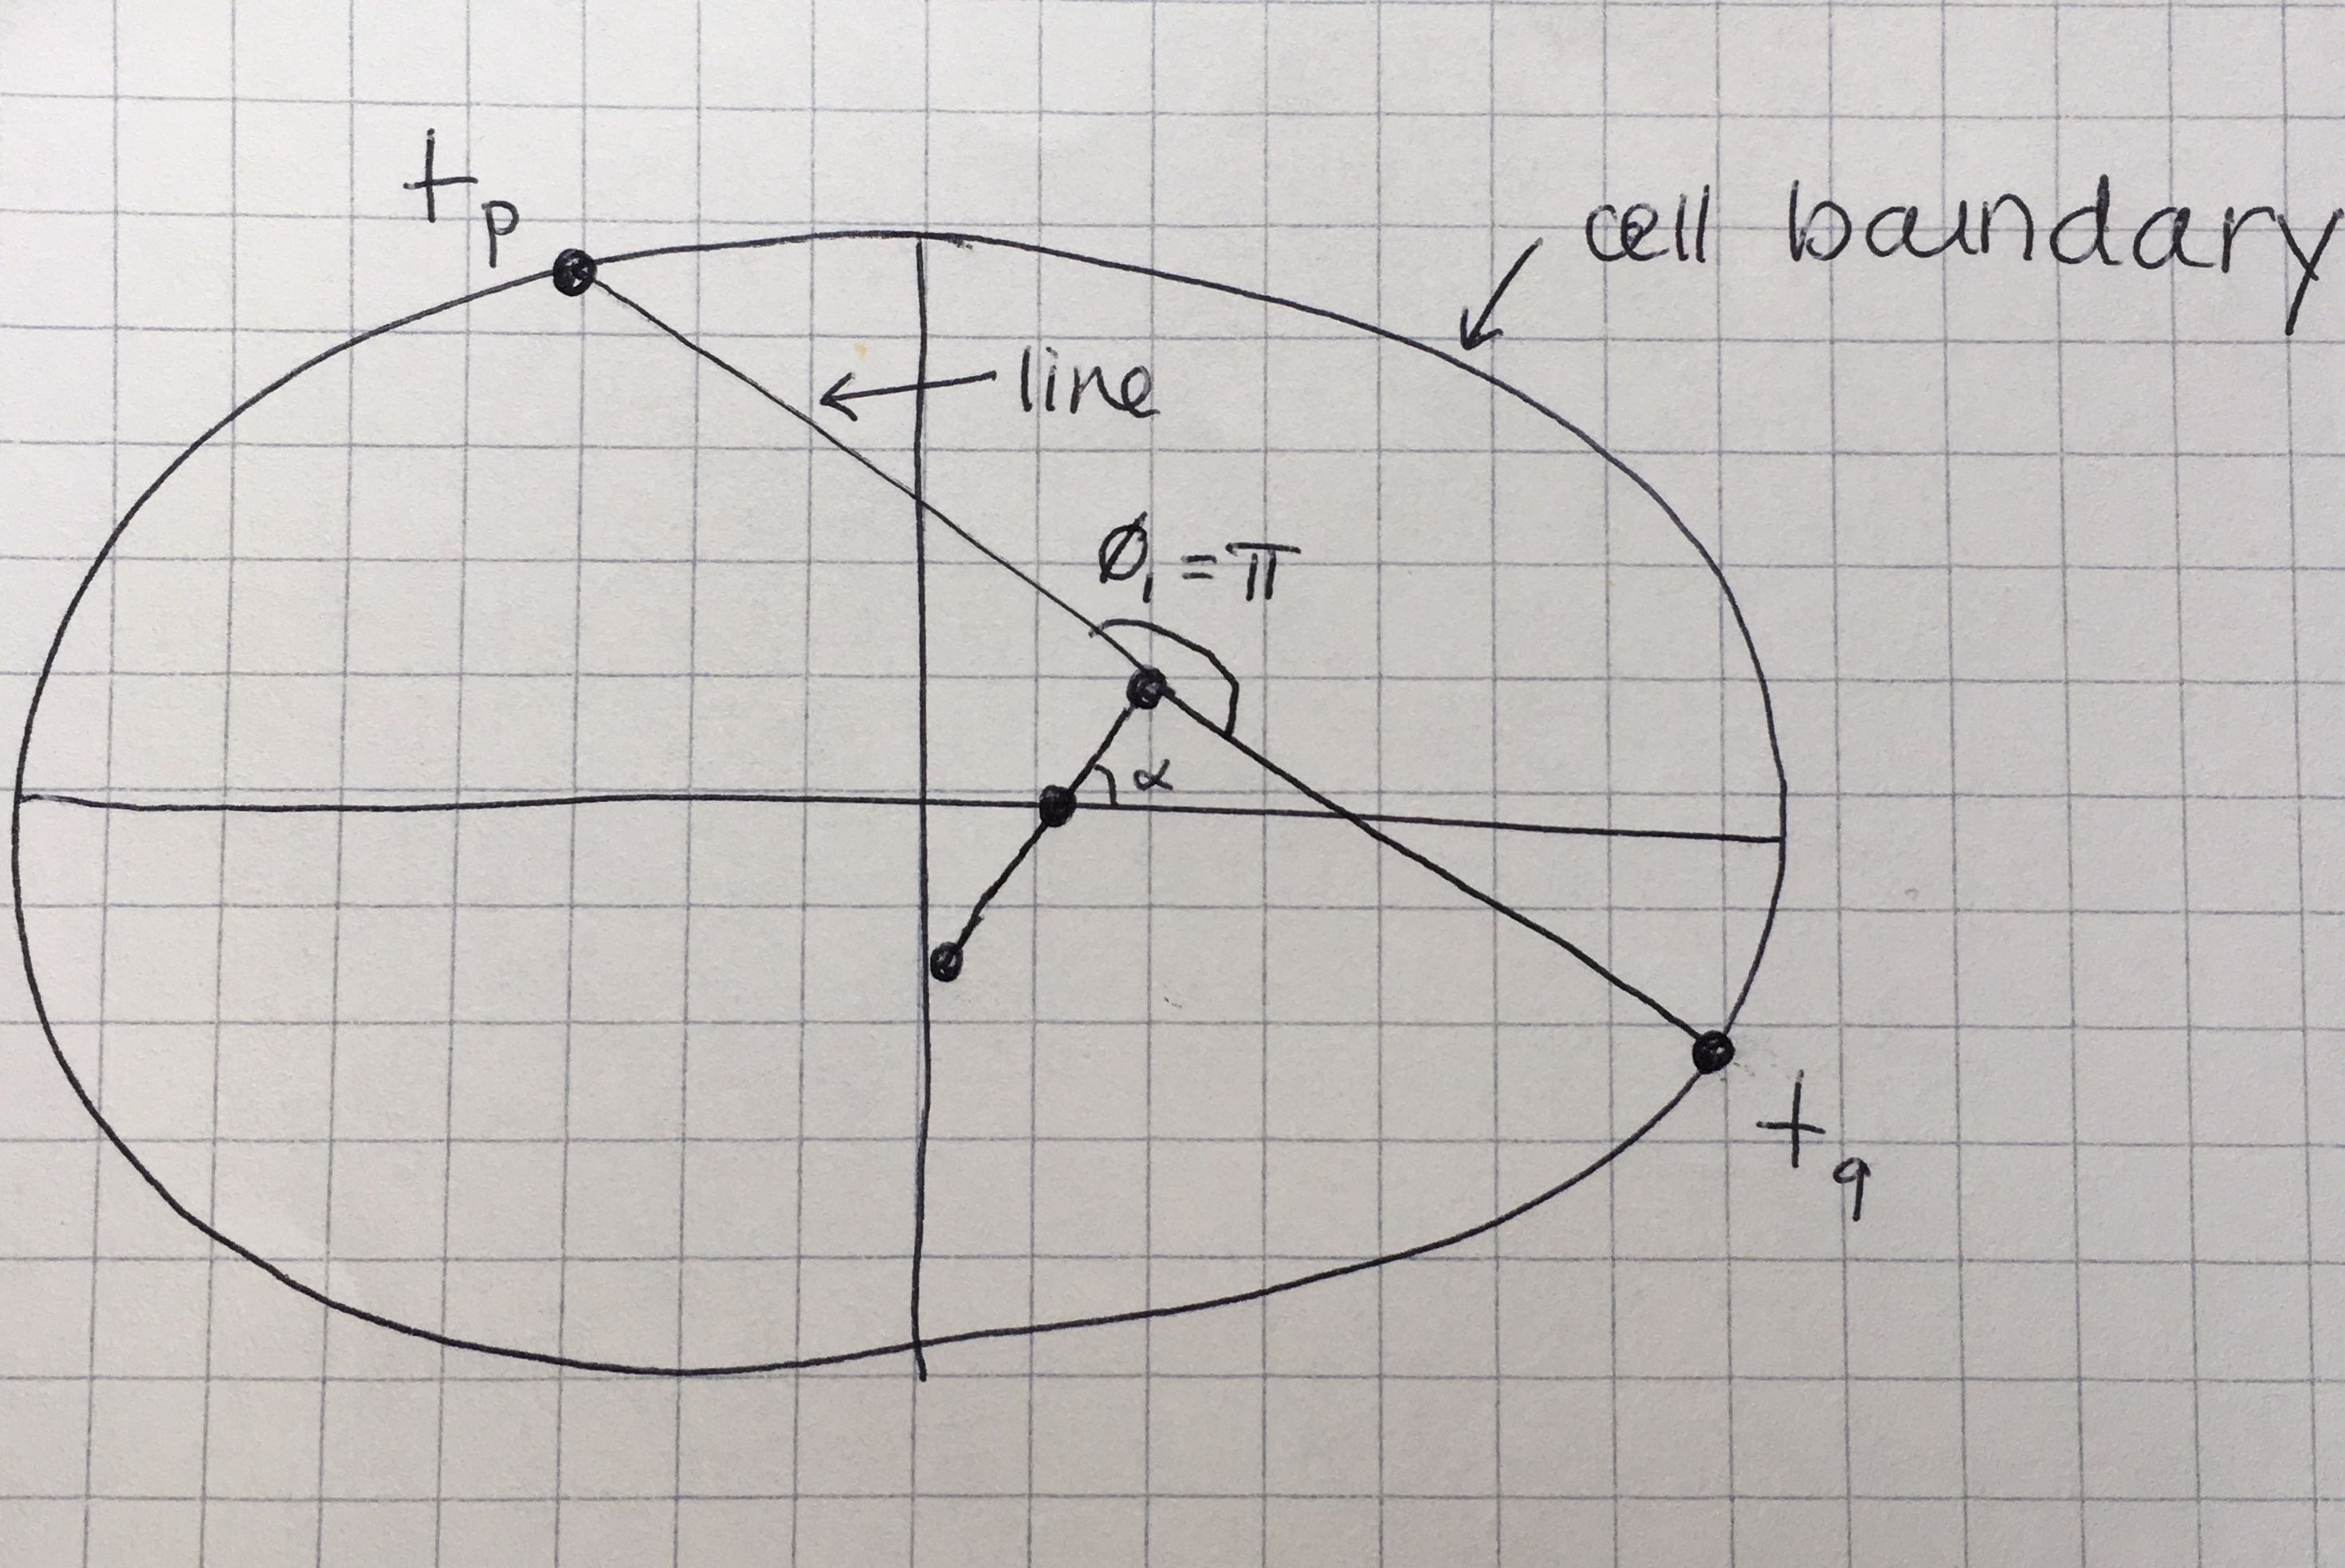 t_p
cell boundary
line
ϕ_1 = π
α
t_q